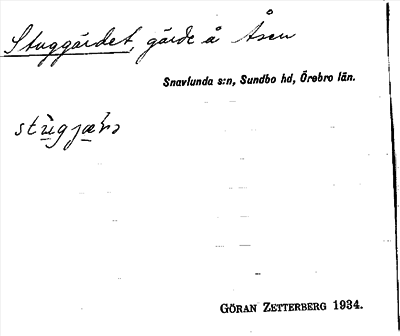 Stuggärdet, gärde å Åsen
Snavlunda s:n, Sundbo hd, Örebro län.
GÖRAN ZETTERBERG 1934.